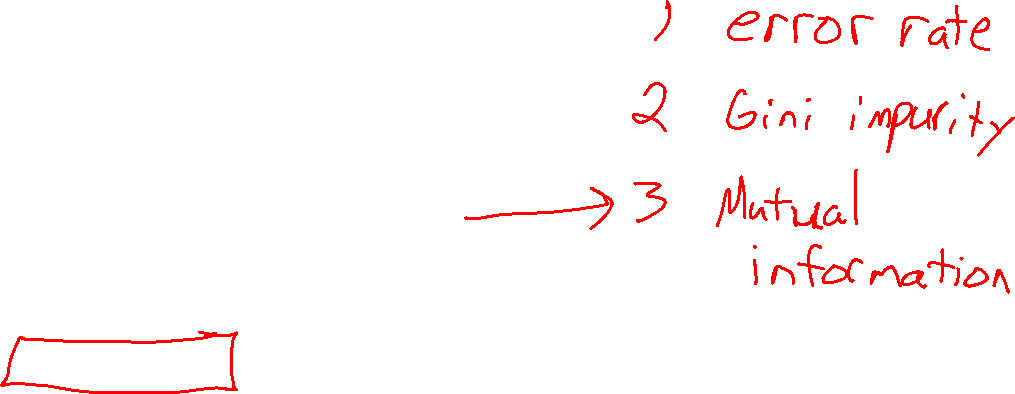 1) error rate
2 Gini impurity
3 Mutual
information